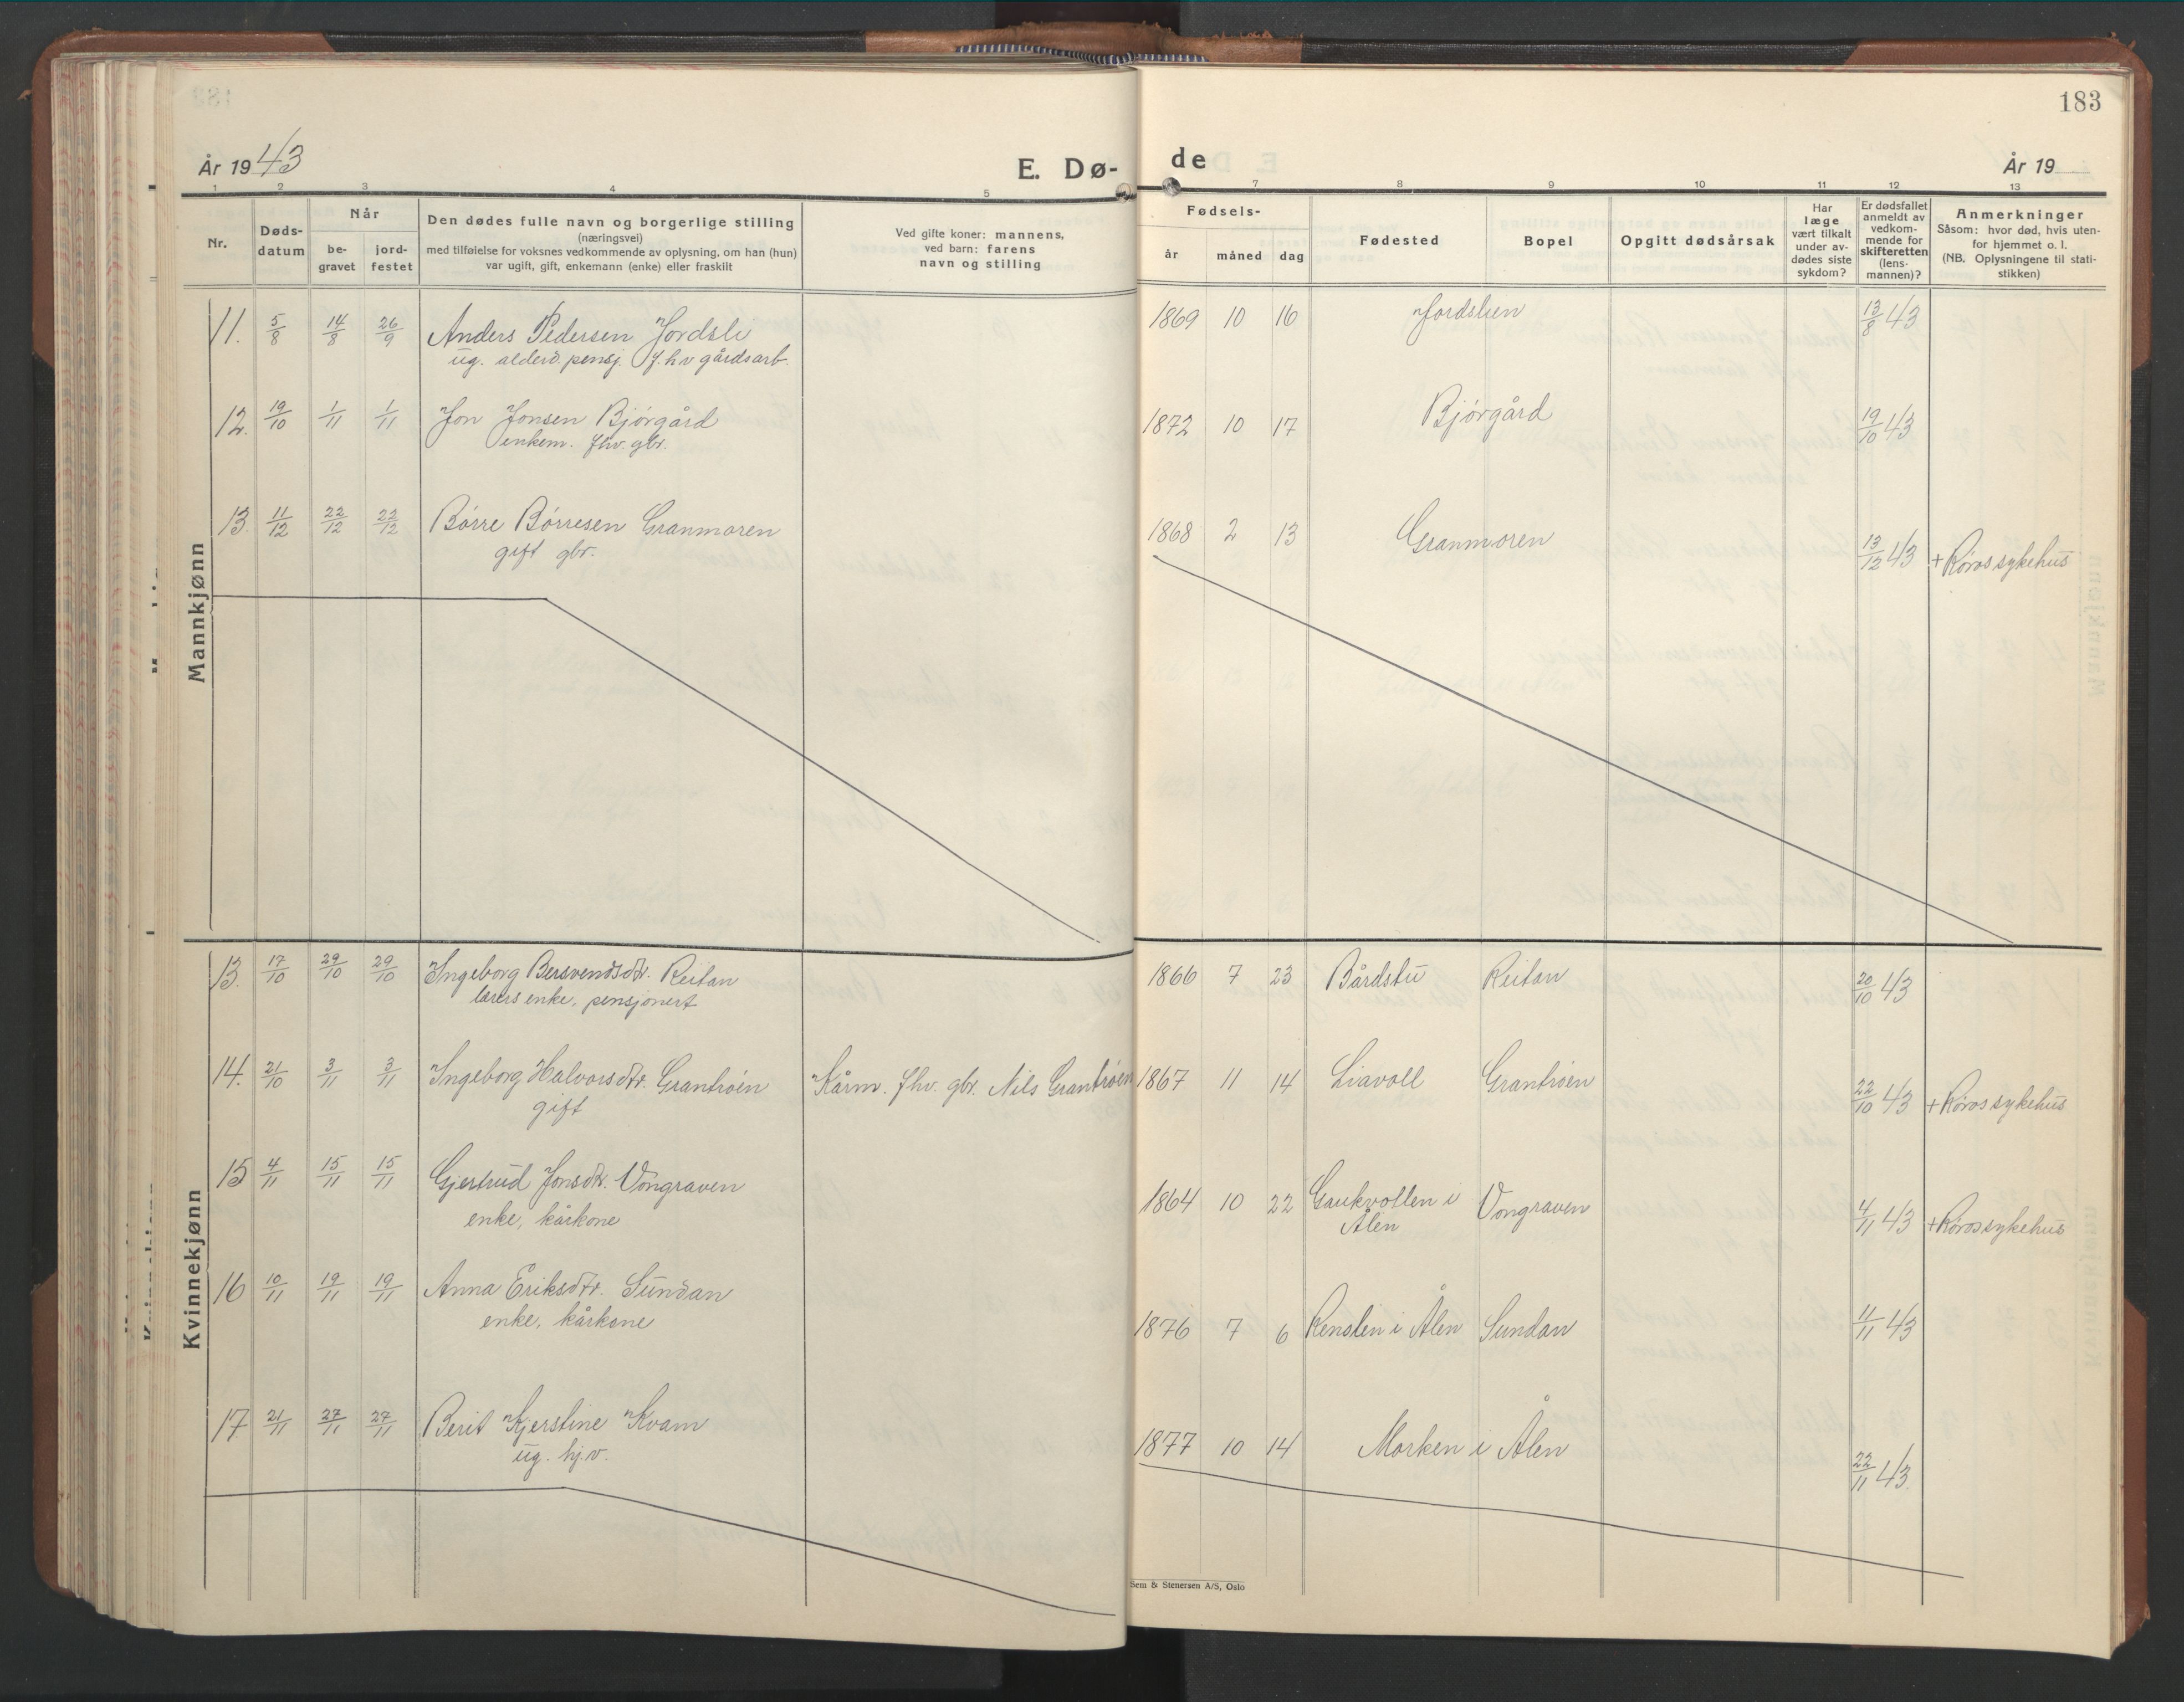 183
År 1943
E. Dø-
de
År 19
1 2 3 4 5 7 8 9 10 11 12 13
Nr.
Døds-
datum
Når
be-
gravet
jord-
festet
Den dødes fulle navn og borgerlige stilling
(næringsvei)
med tilføielse for voksnes vedkommende av oplysning, om han (hun)
var ugift, gift, enkemann (enke) eller fraskilt
Ved gifte koner: mannens,
ved barn: farens
navn og stilling
Fødsels-
år måned dag
Fødested
Bopel
Opgitt dødsårsak
Har
læge
vært tilkalt
under av-
dødes siste
sykdom?
Er dødsfallet
anmeldt av
vedkom-
mende for
skifteretten
(lens-
mannen)?
Anmerkninger
Såsom: hvor død, hvis uten-
for hjemmet o. l.
(NB. Oplysningene til stati-
stikken)
Mannkjønn
11. 5/8 14/8 26/9 Anders Pedersen Jordsli 1869 10 16 Jordslien 13/8 43
ug. alderd. pensj. f.hv gårdsarb.
12. 19/10 1/11 1/11 Jon Jonsen Bjørgård 1872 10 17 Bjørgård 19/10 43
enkem. fhv. gbr.
13. 11/12 22/12 22/12 Børre Børresen Granmoren 1868 2 13 Granmoren 13/12 43 + Røros sykehus
gift gbr.
Kvinnekjønn
13. 17/10 29/10 29/10 Ingeborg Bersvendsdtr. Reitan 1866 7 23 Bårdstu Reitan 20/10 43
lærers enke, pensjonert
14. 21/10 3/11 3/11 Ingeborg Halvorsdtr. Grantrøen Kårm. fhv. gbr. Nils Grantrøen 1867 11 14 Liavoll Grantrøen 22/10 43 + Røros sykehus
gift
15 4/11 15/11 15/11 Gjertrud Jonsdtr. Vongraven 1864 10 22 Gaukvollen i Ålen Vongraven 4/11 43 + Røros sykehus
enke, kårkone
16 10/11 19/11 19/11 Anna Eriksdtr. Sundan 1876 7 6 Renslen i Ålen Sundan 11/11 43
enke, kårkone
17 21/11 27/11 27/11 Berit Kjerstine Kvam 1877 10 14 Morken i Ålen 22/11 43.
ug. hj.v.
Sem & Stenersen A/S, Oslo